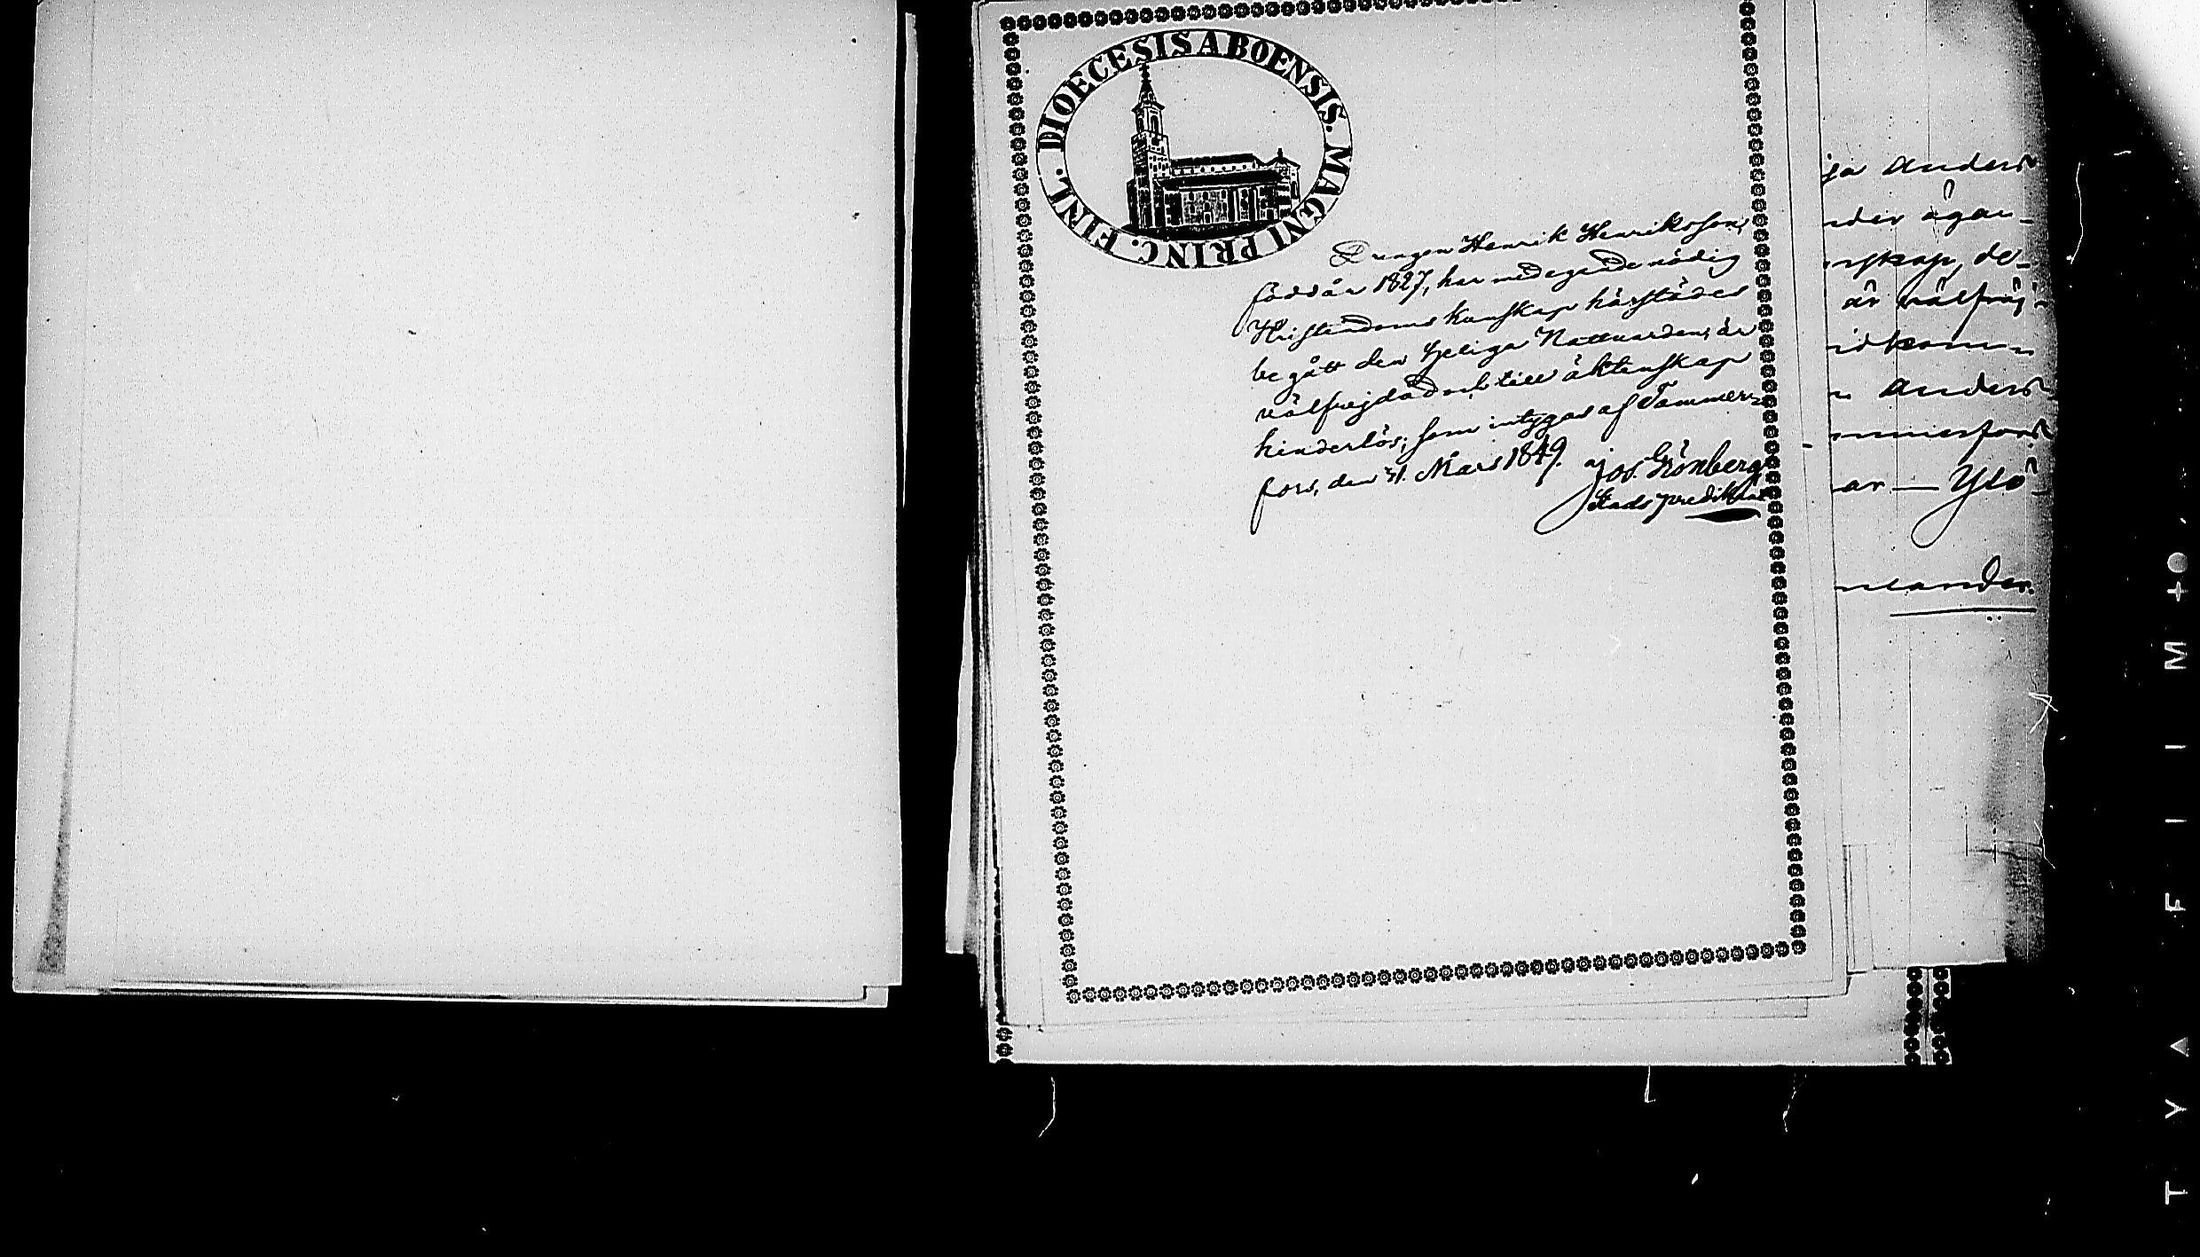 DIOECESIS ABOENSIS. MAGNI PRINC. FINL.
Drengen Henrik Henriksson,
född år 1827, har med egande nödig
Kristendoms kunskap härstädes
begått den Heliga Nattvarden, är
välfrejdad och till äktenskap
hinderlös; som intygas af Tammer-
fors, den 31. Mars 1849. Jos. Grönberg
Stadspredikant
ja Anders
nder ägan-
nskap, de-
är välfräj-
idkomm
n Anders
mmerfors
ar — Ylö
nlander.
TYA FIIM